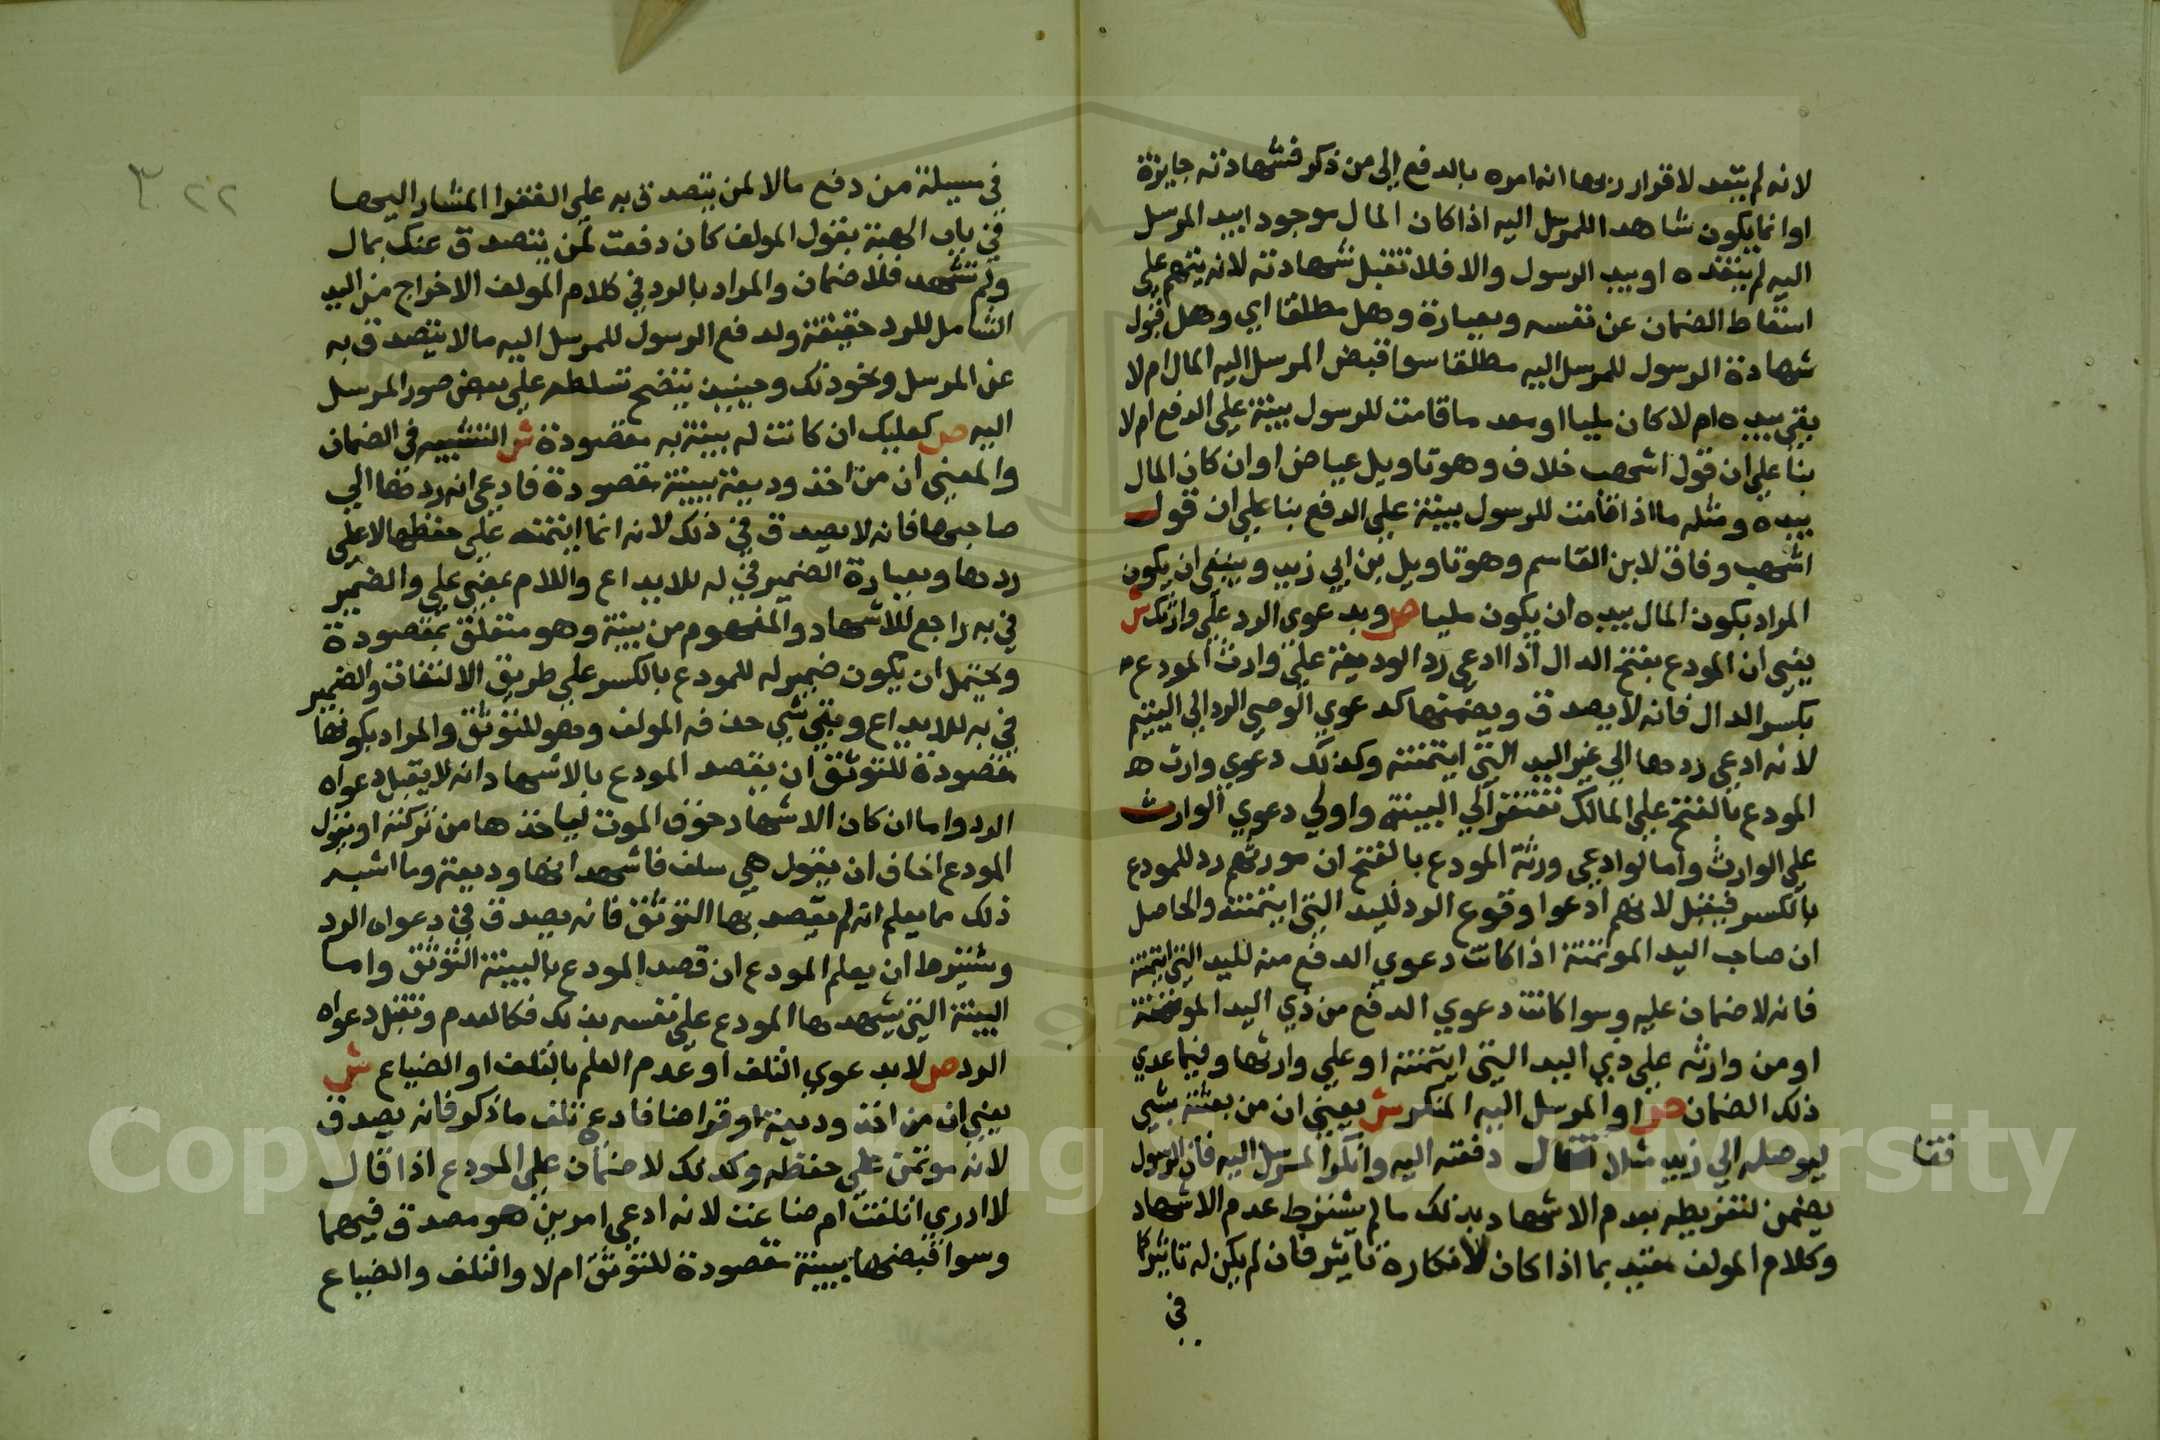 لانه لم يتعد لاقرار ربها انه امره بالدفع الى من ذكر فشهادته جايزة
اوانما يكون شاهدا للمرسل اليه اذا كان المال موجودا بيد المرسل
اليه لم ينفذه او بيد الرسول والا فلا تقبل شهادته لانه يتهم على
اسقاط الضمان عن نفسه وبعبارة وهل مطلقا اي وهل قبول
شهادة الرسول للمرسل اليه مطلقا سوا قبض المرسل اليه المال ام لا
بقى بيده ام لا كان مليا او معدما قامت للرسول بينة على الدفع ام لا
بنا على ان قول اشهب خلاف وهو تاويل عياض او ان كان المال
بيده ومثله ما اذا قامت للرسول بينة على الدفع بنا على ان قول
اشهب وفاق لابن القاسم وهو تاويل بن ابي زيد وينبغي ان يكون
المراد بكون المال بيده ان يكون مليا ص وبدعوى الرد على وارثك ش
يعني ان المودع بفتح الدال اذا ادعى رد الوديعة على وارث المودع
بكسر الدال فانه لا يصدق ويضمنها كدعوي الوصي الرد الي اليتيم
لانه ادعى ردها الي غير اليد التي ايتمنته وكذلك دعوي وارث ه
المودع بالفتح على المالك تفتقر الي البينة واولي دعوي الوارث
على الوارث واما لو ادعى ورثة المودع بالفتح ان مورثهم رد للمودع
بالكسر فيقبل لانهم ادعوا وقوع الرد لليد التي ايتمنته والحاصل
ان صاحب اليد الموتمنة اذا كانت دعوي الدفع منه لليد التي ايتمنته
فانه لا ضمان عليه وسوا كانت دعوي الدفع من ذي اليد الموتمنة
او من وارثه على ذي اليد التي ايتمنته او على وارثها وفيما عدي
ذلك الضمان ص او المرسل اليه المنكر ش يعني ان من بعثته بشي
ليوصله الي زيد مثلا فقال دفعته اليه وانكر المرسل اليه فان الرسول
فقا
يضمن لتفريطه بعدم الاشهاد بذلك ما لم يشترط عدم الاشهاد
وكلام المولف مقيد بما اذا كان لانكاره تاثير فان لم يكن له تاثير كا
في
٢٢
في مسيلة من دفع مالا لمن يتصدق به على الفقرا المشار اليها
في باب الهبة بقول المولف كان دفعت لمن يتصدق عنك بمال
ولم تشهد فلا ضمان والمراد بالرد في كلام المولف الاخراج من اليد
الشامل للرد حقيقة ولدفع الرسول للمرسل اليه مالا يتصدق به
عن المرسل ونحو ذلك وحينيذ يتضح تسلطه على بعض صور المرسل
اليه ص كعليك ان كانت له بينة به مقصودة ش التشبيه في الضمان
والمعنى ان من اخذ وديعة ببينة مقصودة فادعى انه ردها الي
صاحبها فانه لا يصدق في ذلك لانه انما ايتمنه على حفظها لا على
ردها وبعبارة الضمير في له للايداع واللام بمعنى على والضمير
في به راجع للاشهاد والمفهوم من بينة وهو متعلق بمقصودة
ويحتمل ان يكون ضمير له للمودع بالكسر على طريق الالتفات والضمير
في به للايداع وبقي شي حذفه المولف وهو للتوثق والمراد بكونها
مقصودة للتوثق ان يقصد المودع بالاشهاد انه لا يقبل دعواه
الرد واما ان كان الاشهاد خوف الموت لياخذها من تركته او يقول
المودع اخاف ان يقول هي سلف فاشهد انها وديعة وما اشبه
ذلك مما يعلم انه لم يقصد بها التوثق فانه يصدق في دعواه الرد
وشترط ان يعلم المودع ان قصد المودع بالبينة التوثق واما
البينة التي يشهدها المودع على نفسه بذلك فكالعدم وتقبل دعواه
الرد ص لا بدعوي التلف او عدم العلم بالتلف او الضياع ش
يعني ان من اخذ وديعة او قراضا فادعى تلف ما ذكر فانه يصدق
لانه موتمن على حفظه وكذلك لا ضمان على المودع اذا قال
لا ادري اتلفت ام ضاعت لانه ادعى امرين هو مصدق فيهما
وسوا قبضها ببينة مقصودة للتوثق ام لا والتلف والضياع
Copyright © King Saud University